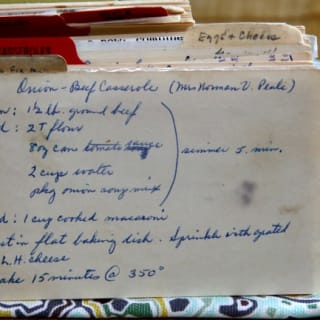 Eggs & Cheese
CASSEROLES
Onion-Beef Casserole (Mrs Norman V. Peale)
n: 1½ lb. ground beef
d: 2 T flour
8 oz can tomato sauce
2 cups water
pkg onion soup mix
simmer 5 min.
d: 1 cup cooked macaroni
t in flat baking dish. Sprinkle with grated
L.H. cheese
ake 15 minutes @ 350°